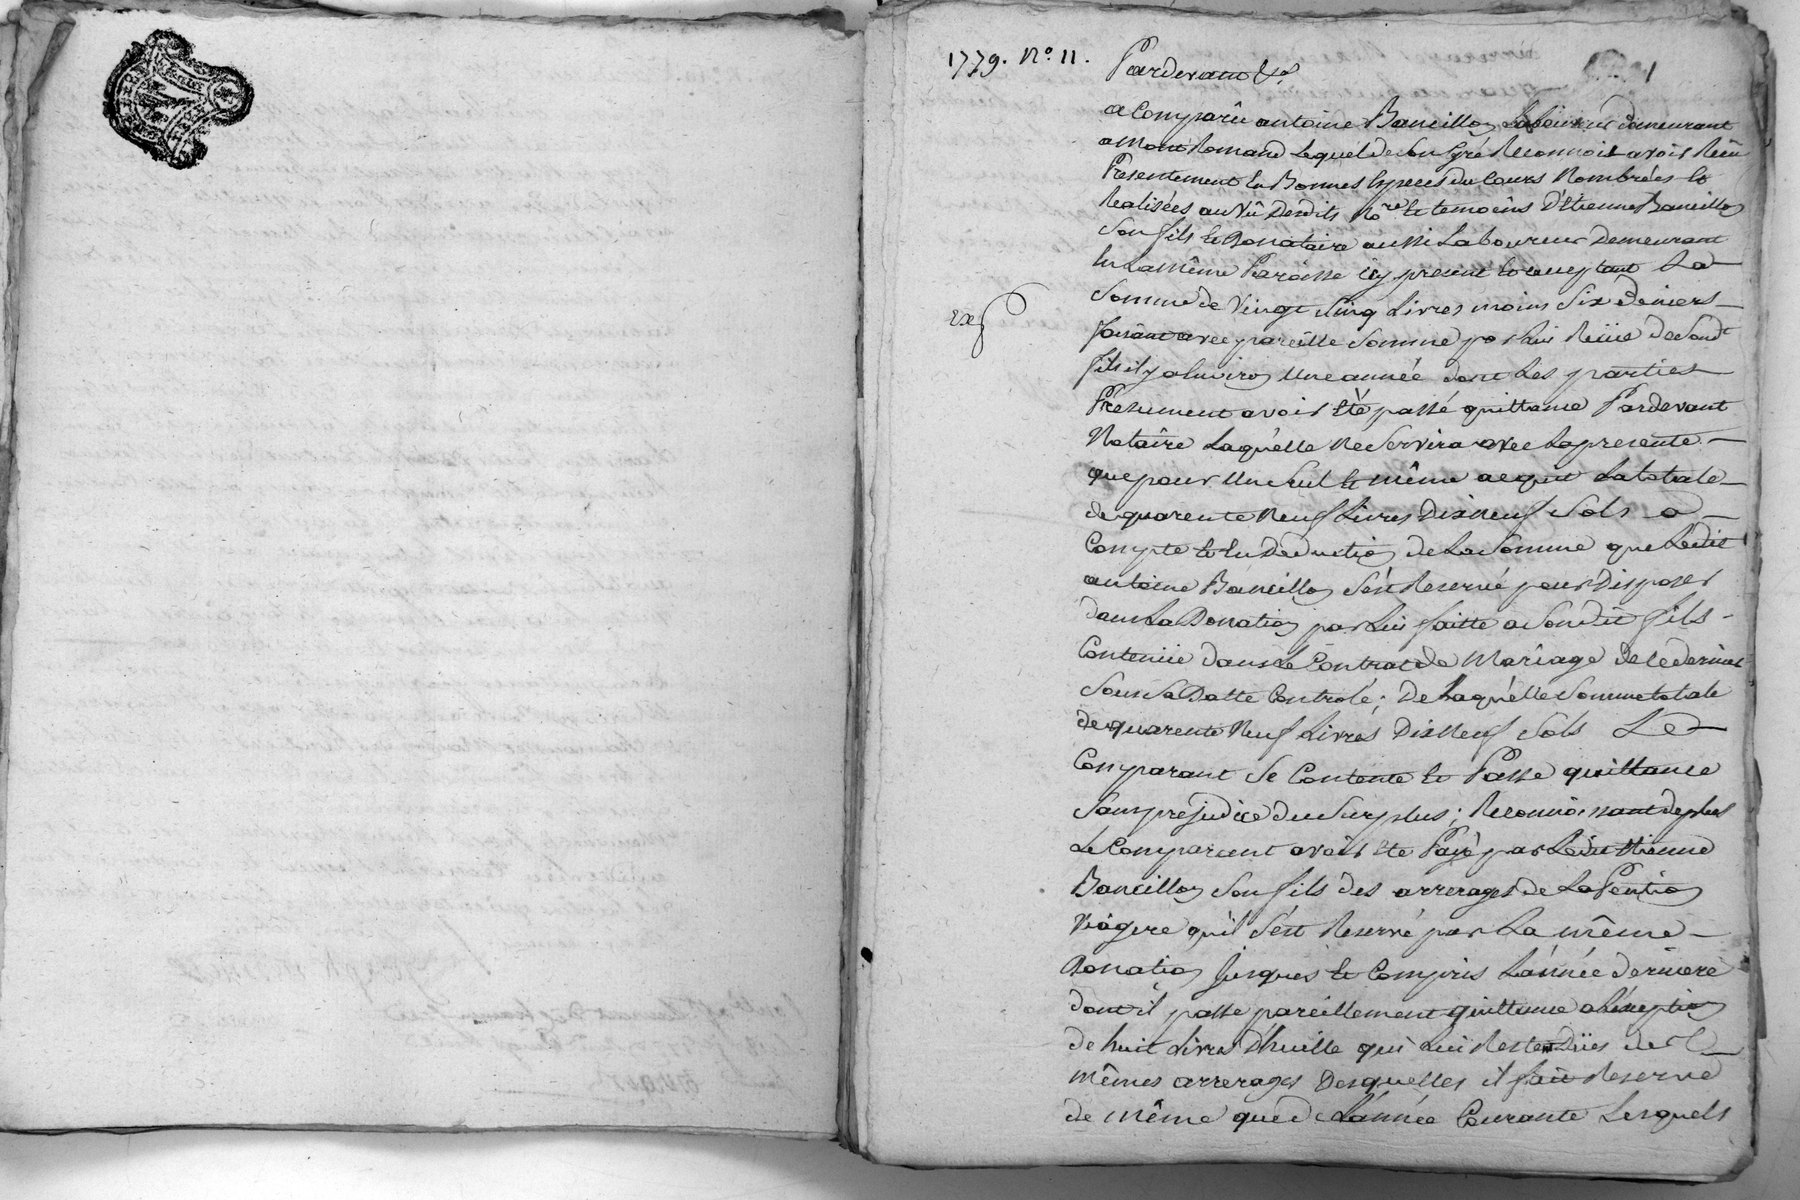 1779. N° 11.
Pardevant &a
a Comparû antoine Bancillon Laboureur demeurant
a Mont Romand Lequel de Son Gré Reconnoit avoir Reçû
Presentement En Bonnes Especes du Cours Nombrées Et
Realisées au Vû Desdits No.re Et temoins D'Etienne Bancillon
Son fils Et Donataire aussi Laboureur Demeurant
En La même Paroisse icy present Et acceptant La
Somme de Vingt Cinq Livres moins Six Deniers
faisant avec pareille Somme par Lui Reçüe de Sond.t
fils il y a Environ Une année dont Les parties
Presument avoir Eté passé quittance Pardevant
Notaire Laquelle Ne Servira avec La presente
que pour Un Seul Et même acquit La totale
de quarente Neuf Livres Dix Neuf Sols a
Compte Et En Deduction de La Somme que Ledit
antoine Bancillon S'est Reservé pour Disposer
dans La Donation par Lui faitte a Sondit fils
Contenüe dans Le Contrat de Mariage de Ce dernier
Sous Sa Datte Controlé ; De Laquelle Somme totale
de quarente Neuf Livres Dix Neuf Sols Le
Comparant Se Contente Et Passe quittance
Sans prejudice du Surplus ; Reconnoissant de plus
Le Comparant avoir Eté Payé par Ledit Etienne
Bancillon Son fils des arrerages de La Pention
Viagere qu'il S'est Reservé par La même
Donation Jusques Et Compris L'année derniere
dont il passe pareillement quittance a L'exeption
de huit Livres D'huille qui Lui Restent Dües des
mêmes arrerages Desquelles il fait Reserve
de même que de L'année Courante Lesquels
exp